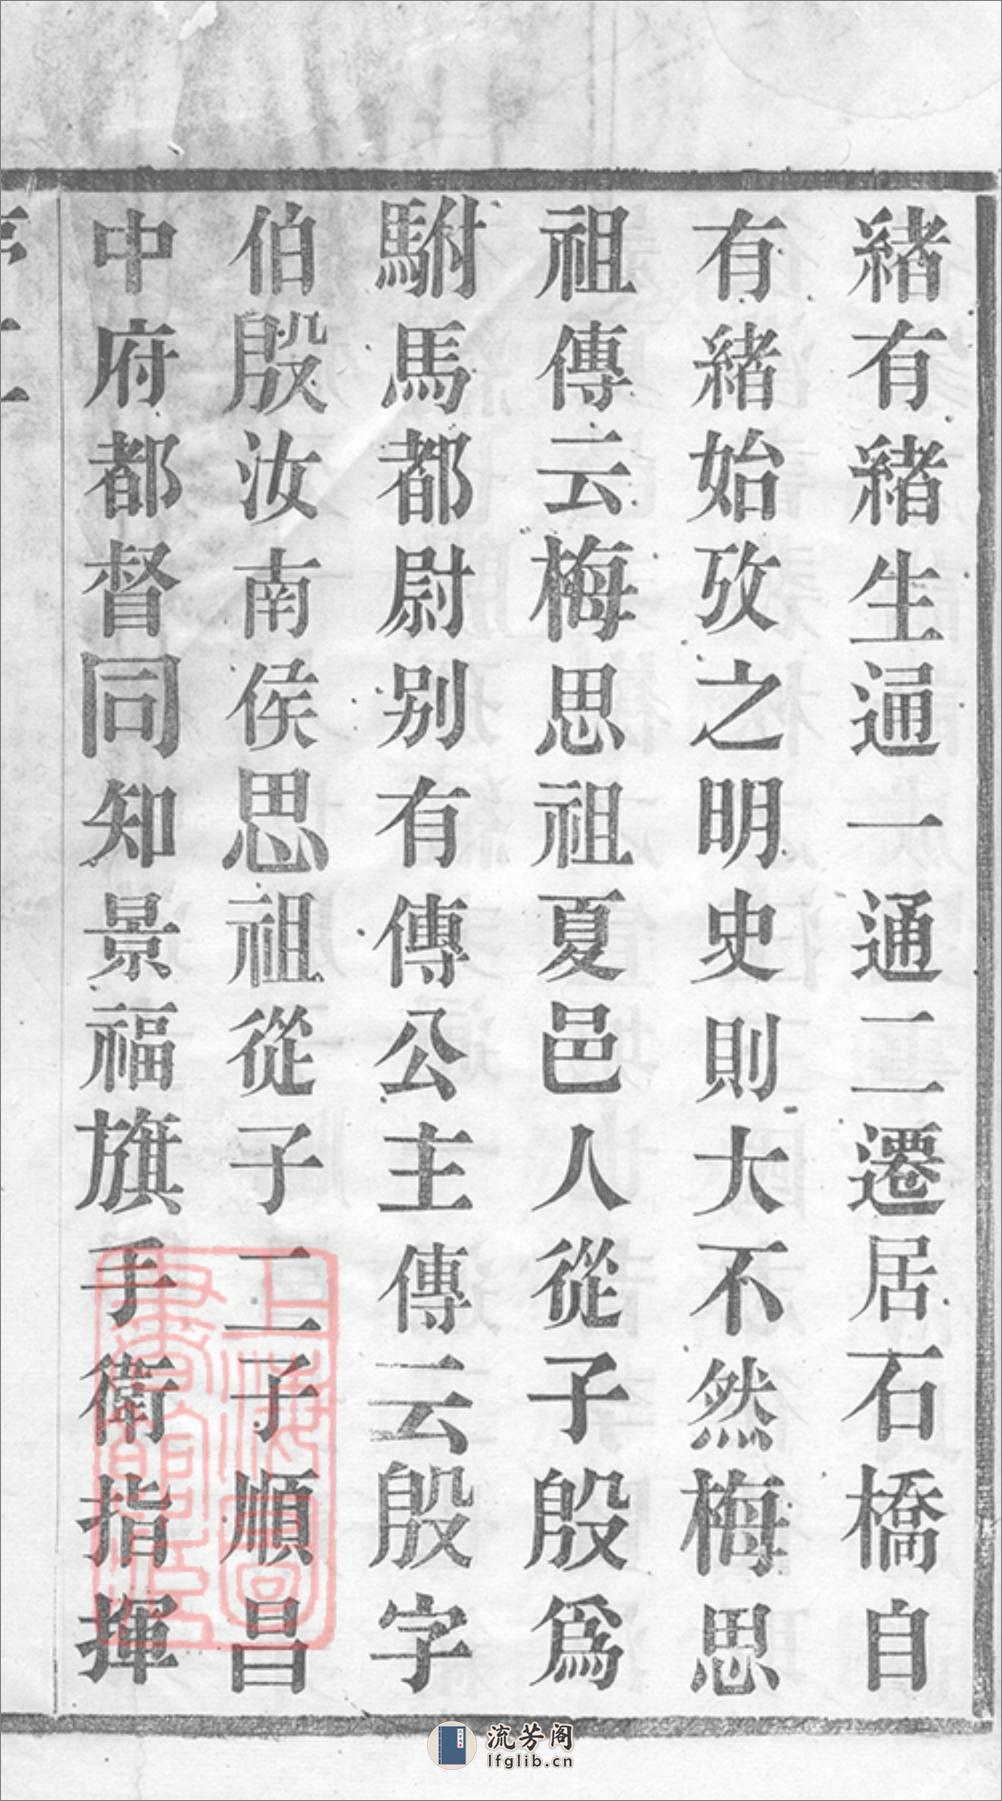 緒有緒生通一通二遷居石橋自
有緒始攷之明史則大不然梅思
祖傳云梅思祖夏邑人從子殷為
駙馬都尉别有傳公主傳云殷字
伯殷汝南侯思祖從子二子順昌
中府都督同知景福旗手衛指揮
上海圖書館藏
流芳阁
lfglib.cn